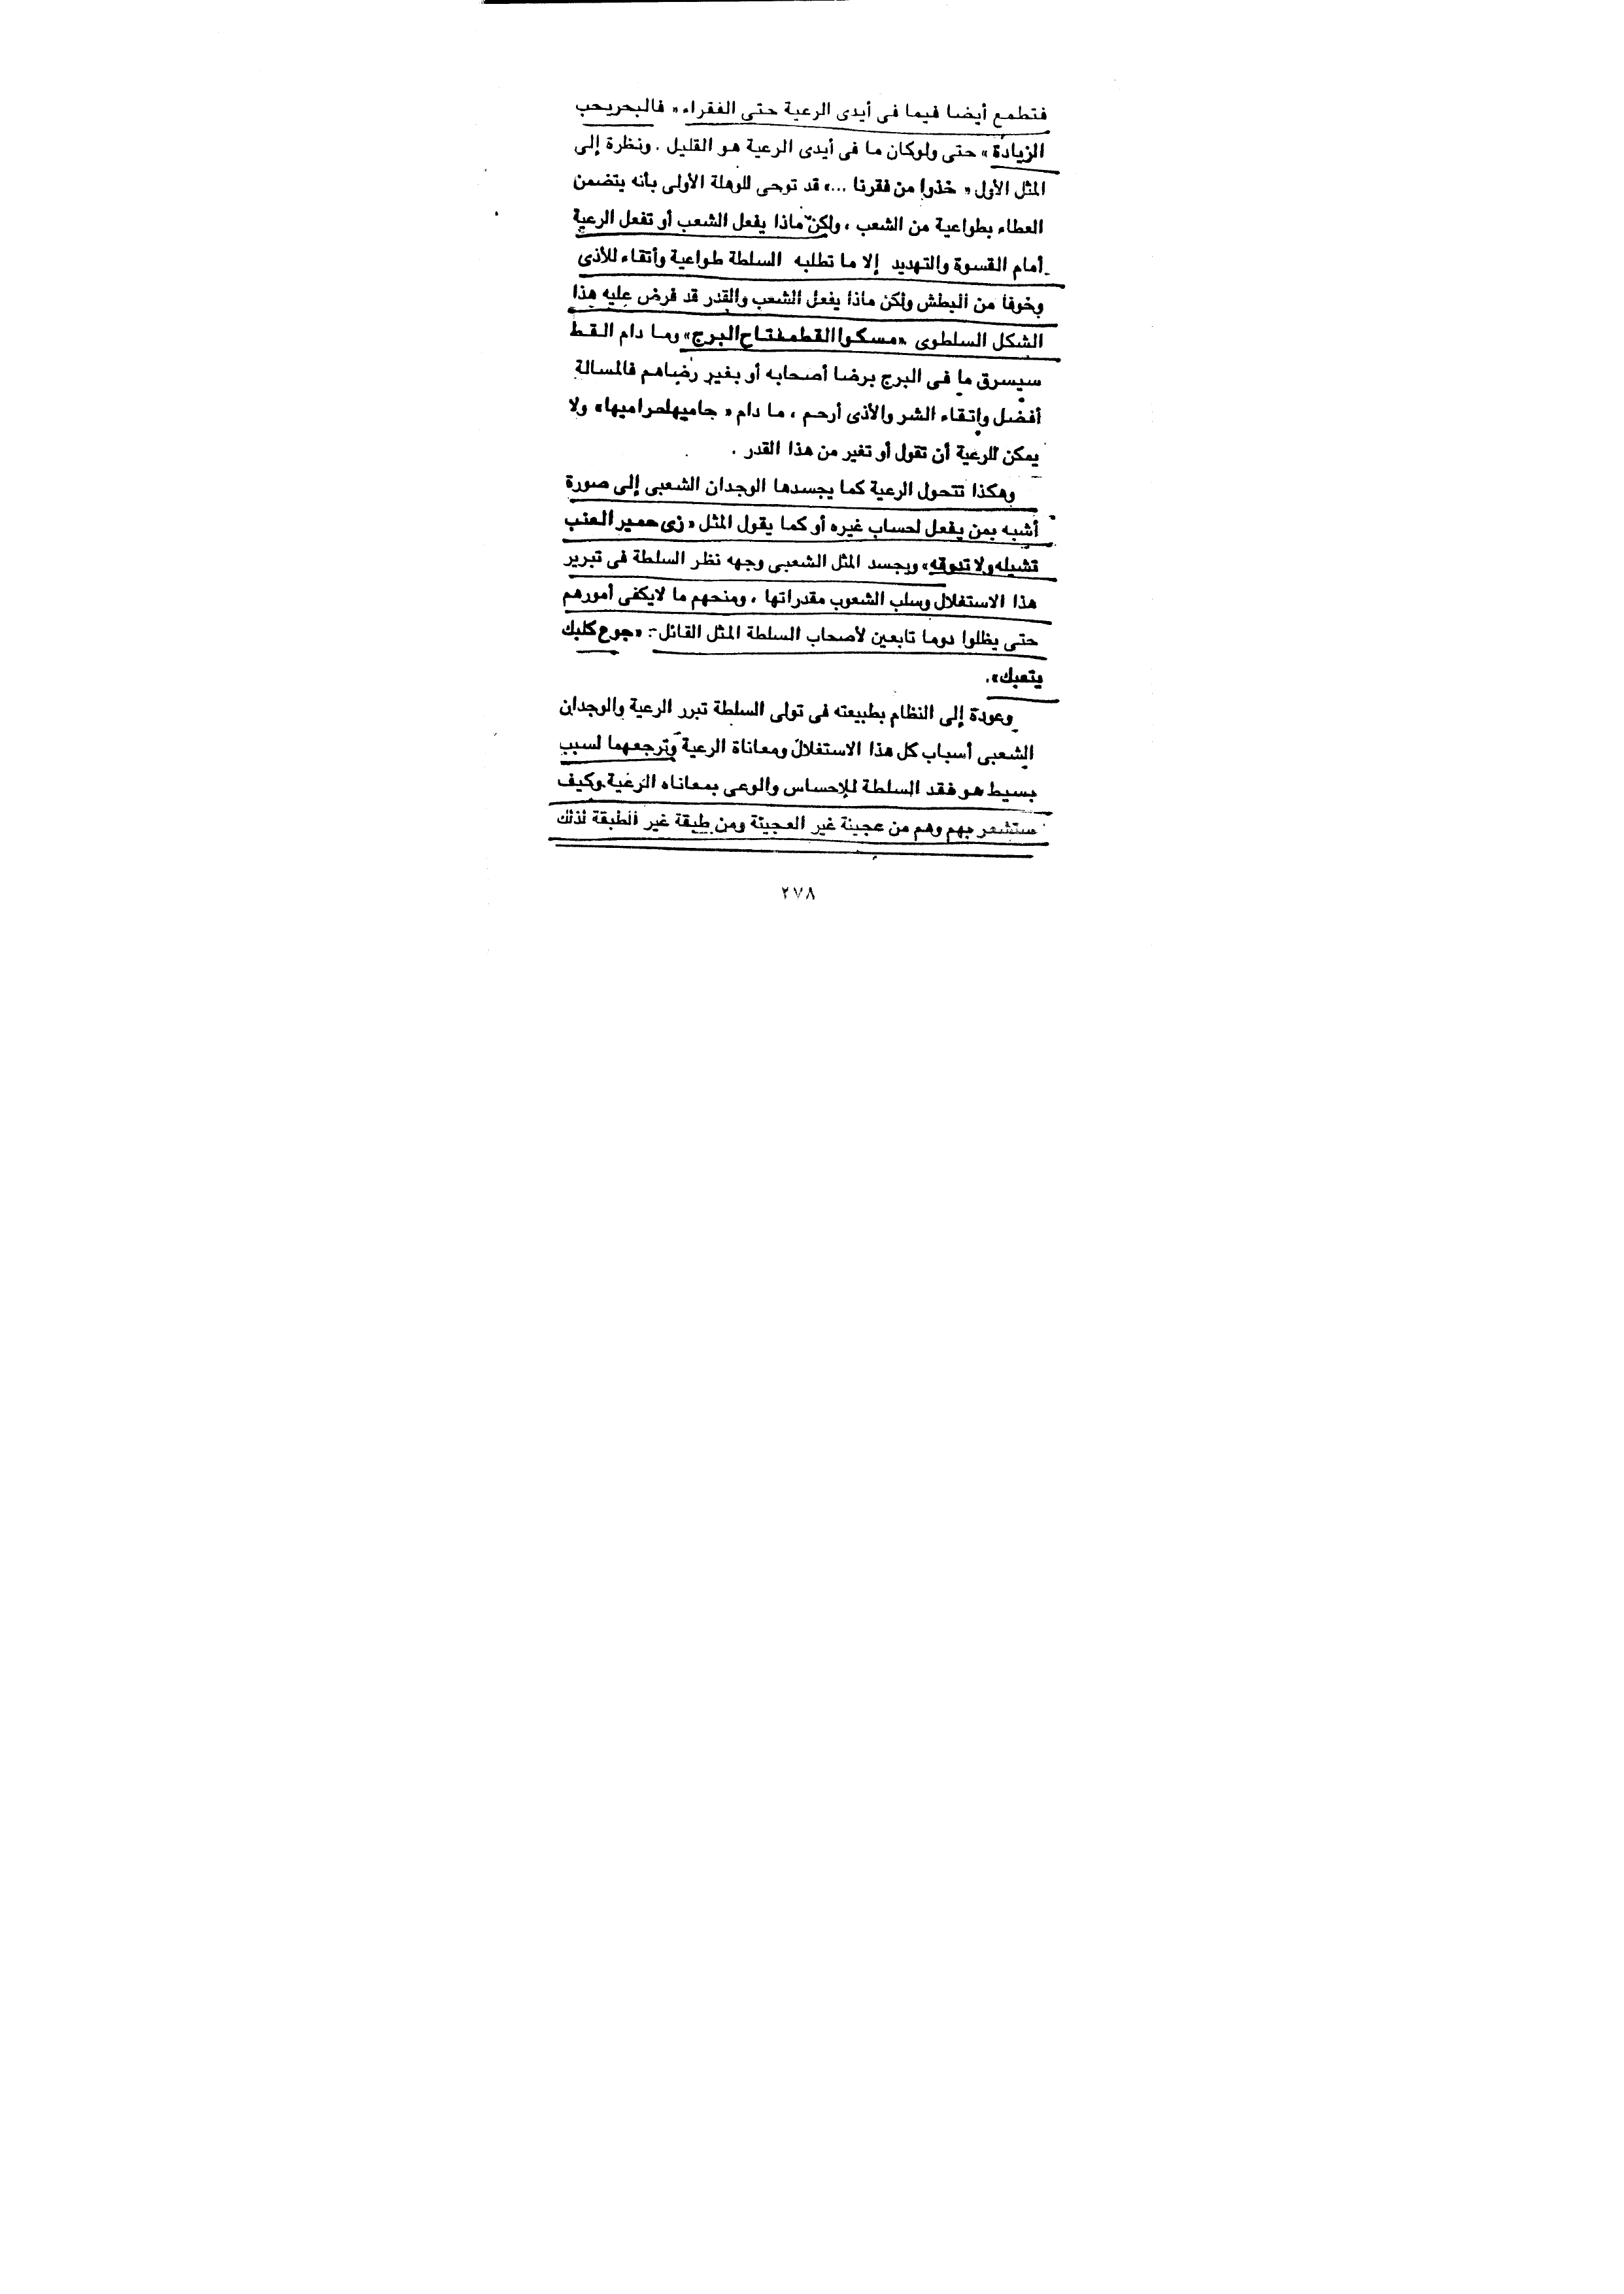 فتطمع أيضا فيما فى أيدى الرعية حتى الفقراء « فالبحريحب
الزيادة » حتى ولوكان ما فى أيدى الرعية هو القليل . ونظرة إلى
المثل الأول « خذوا من فقرنا ...» قد توحى للوهلة الأولى بأنه يتضمن
العطاء بطواعية من الشعب ، ولكن ماذا يفعل الشعب أو تفعل الرعية
أمام القسوة والتهديد إلا ما تطلبه السلطة طواعية وأتقاء للأذى
وخوفا من البطش ولكن ماذا يفعل الشعب والقدر قد فرض عليه هذا
الشكل السلطوى «مسكوا القط مفتاح البرج» وما دام القط
سيسرق ما فى البرج برضا أصحابه أو بغير رضاهم فالمسالة
أفضل وإتقاء الشر والأذى أرحم ، ما دام « جاميها حراميها» ولا
يمكن للرعية أن تقول أو تغير من هذا القدر .
وهكذا تتحول الرعية كما يجسدها الوجدان الشعبى إلى صورة
أشبه بمن يفعل لحساب غيره أو كما يقول المثل « زى حمير العنب
تشيله ولا تدوقه» ويجسد المثل الشعبى وجهه نظر السلطة فى تبرير
هذا الاستغلال وسلب الشعوب مقدراتها ، ومنحهم ما لايكفى أمورهم
حتى يظلوا دوما تابعين لأصحاب السلطة المثل القائل :- «جوع كلبك
يتعبك».
وعودة إلى النظام بطبيعته فى تولى السلطة تبرر الرعية والوجدان
الشعبى أسباب كل هذا الاستغلال ومعاناة الرعية وترجعهما لسبب
بسيط هو فقد السلطة للإحساس والوعى بمعاناه الرعية وكيف
ستشعر بهم وهم من عجينة غير العجينة ومن طبقة غير الطبقة لذلك
٢٧٨